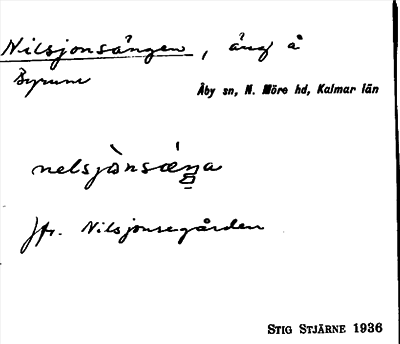 Nilsjonsängen, äng å
Byrum
Åby sn, N. Möre hd, Kalmar län
nelsjònsǽŋa
Jfr. Nilsjonsegården
STIG STJÄRNE 1936